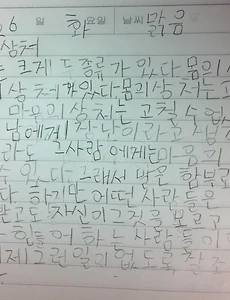 26 일 화 요일 날씨 맑음
상처
는 크게 두종류가 있다 몸의
상처가 있다 몸의 상처는 고
마음의 상처는 고칠 수 없
남에게 장난이라고
라도 그사람에게는 마음의
수 있다. 그래서 말은 함부로
다. 하지만 어떤 사람들은
받고도 자신이 그것을 모르고
힘들어 하는 사람들이
제 그런일이 없도록 잘